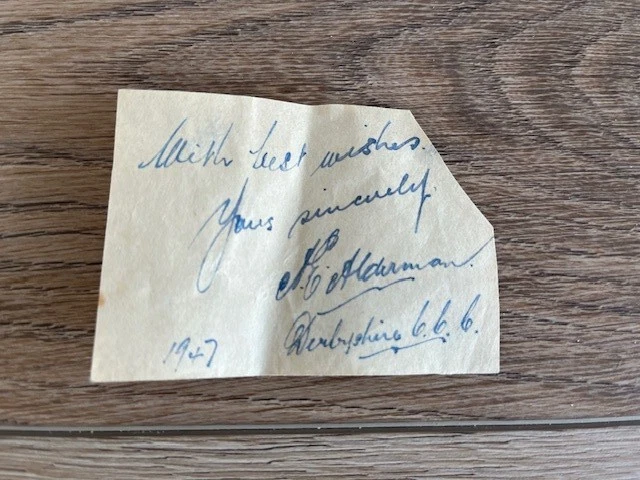 With best wishes.
Yours sincerely
A.E. Alderman.
Derbyshire C.C.C.
1947